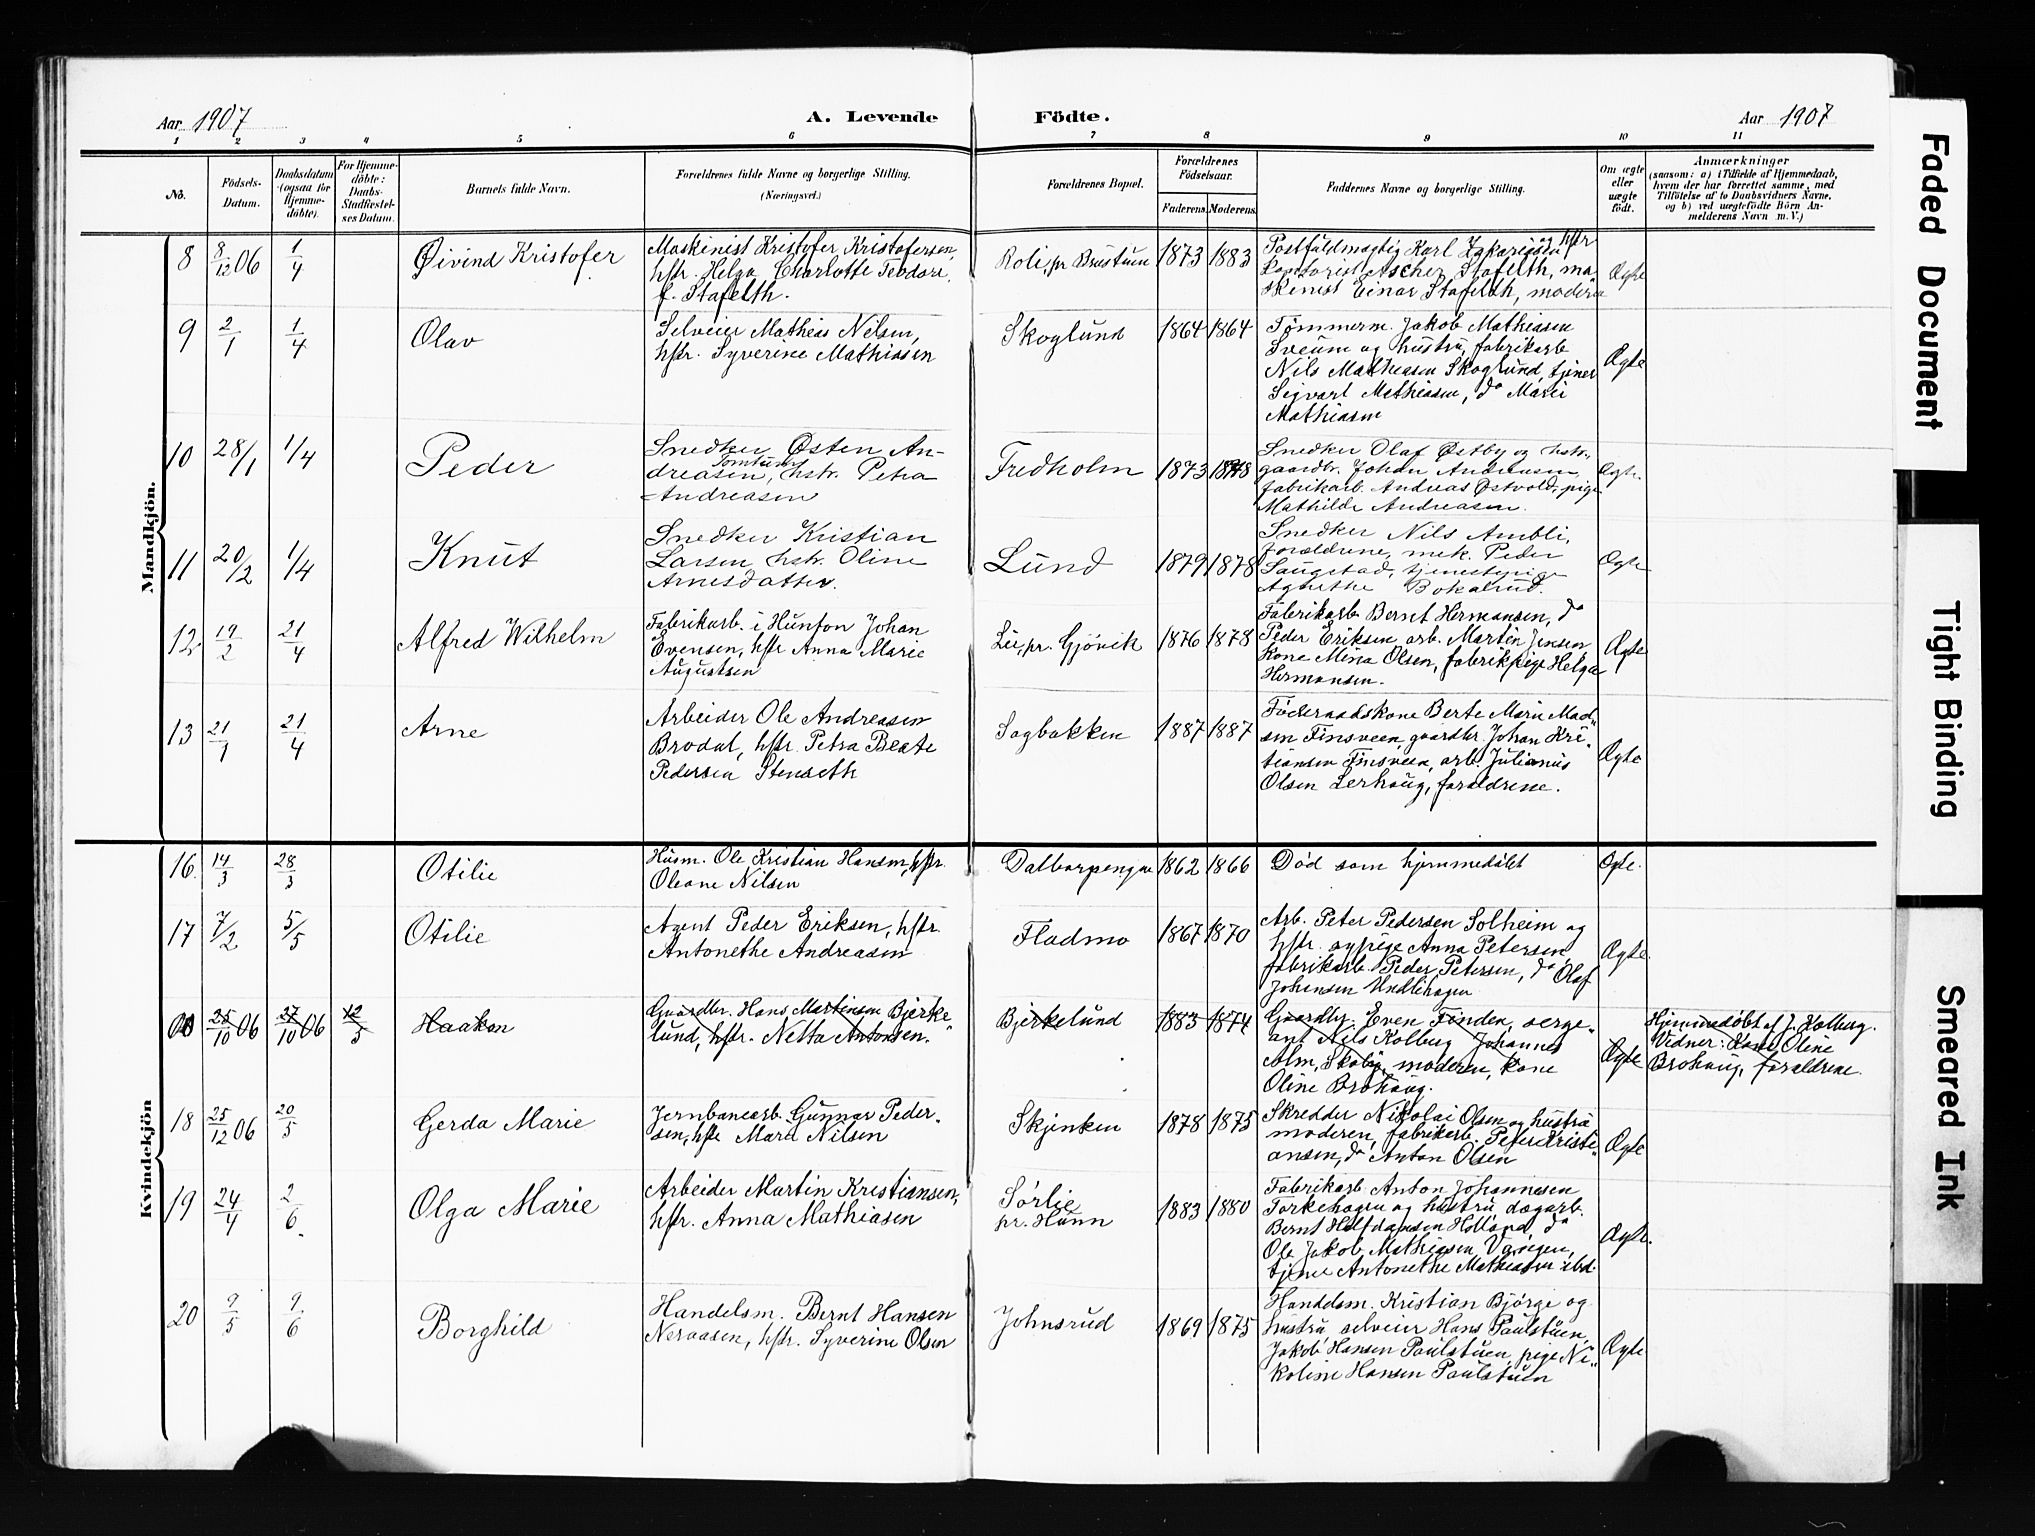 Aar 1907
A. Levende
Födte.
Aar 1907
1 2 3 4 5 6 7 8 9 10 11
No.
Födsels-Datum.
Daabsdatum (ogsaa for Hjemme-döbte).
For Hjemme-döbte: Daabs-Stadfæstel-ses Datum.
Barnets fulde Navn.
Forældrenes fulde Navne og borgerlige Stilling.
(Næringsvei.)
Forældrenes Bopæl.
Forældrenes Födselsaar.
Faderens. Moderens.
Faddernes Navne og borgerlige Stilling.
Om ægte eller uægte födt.
Anmærkninger
(saasom: a) i Tilfælde af Hjemmedaab,
hvem der har forrettet samme, med
Tilföielse af to Daabsvidners Navne,
og b) ved uægtefödte Börn An-
melderens Navn m. V.)
Mandkjön.
8 8/12 06 1/4 Øivind Kristofer
Maskinist Kristofer Kristofersen,
hstr. Helga Charlotte Teodora
f. Stafelth.
Roli, pr Brustuen 1873 1883
Postfuldmægtig Karl Zakarisen og hstr
kontorist Ascher Stafelth, ma
skinist Einar Stafelth, moderen
Ægte
9 2/1 1/4 Olav
Selveier Mathias Nilsen,
hstr. Syverine Mathiasen
Skoglund 1864 1864
Tømmerm. Jakob Mathiasen
Sveum og hustru, fabrikarb
Nils Mathiasen Skoglund, tjener
Sigvart Mathiasen, do Marie
Mathiasen
Ægte
10 28/1 1/4 Peder
Snedker Østen An-
dreasen Tomtum, hstr. Petra
Andreasen
Fredholm 1873 1878
Snedker Olaf Østby og hstr.,
gaardbr. Johan Andersen
fabrikarb. Andreas Østvold, pige
Mathilde Andreasen.
Ægte.
11 20/2 1/4 Knut
Snedker Kristian
Larsen, hstr. Oline
Arnesdatter.
Lund 1879 1878
Snedker Nils Ambli,
forældrene, mek. Peder
Saugstad, tjenestepige
Agnethe Bokalrud.
Ægte
12 19/2 21/4 Alfred Wilhelm
Fabrikarb. i Hunton Johan
Evensen, hstr Anna Marie
Augustsen
Lie, pr. Gjøvik 1876 1878
Fabrikarb Bernt Hermansen, do
Peder Eriksen, arb. Martin Jensen
kone Mina Olsen, fabrikpige Helga
Hermansen.
Ægte
13 21/1 21/4 Arne
Arbeider Ole Andreasen
Brodal, hstr. Petra Beate
Pedersen Stenseth
Sagbakken 1887 1887
Föderaadskone Berte Marie Mad-
sen Finsveen, gaardbr Johan Kri-
stiansen Finsveen, arb. Julianus
Olsen Lerhaug, forældrene.
Ægte
Kvindekjön
16. 14/3 28/3 Otilie
Husm. Ole Kristian Hansen, hstr.
Oleane Nilsen
Dalborpengen 1862 1866
Død som hjemmedøbt
Ægte.
17 7/2 5/5 Otilie
Agent Peder Eriksen, hstr.
Antonethe Andreasen
Fladmo 1867 1870
Arb. Peter Pedersen Solheim og
hstr. sypige Anna Petersen
fabrikarb. Peder Petersen, do Olaf
Johansen Undlihagen
Ægte.
25/10 06 27/10 06 12/5 Haakon
Gaardbr. Hans Martinsen Bjerke
lund, hstr. Netta Antonsen.
Bjerkelund 1883 1874
Gaardbr. Even Finden, serge-
ant Nils Kolberg Johannes
Alm, Skoby, moderen, kone
Oline Brohaug.
Ægte
Hjemmedøbt af J. Kolberg.
Vidner: Kone Oline
Brohaug, forældrene.
18 25/12 06 20/5 Gerda Marie
Jernbanearb. Gunnar Peder-
sen, hstr Mara Nilsen
Skjenken 1878 1875
Skredder Nikolai Olsen og hustru
moderen, fabrikarb. Peter Kristi-
ansen, do Anton Olsen
Ægte
19 24/4 2/6. Olga Marie
Arbeider Martin Kristiansen,
hstr. Anna Mathiasen
Sørlie
pr. Hunn 1883 1880
Fabrikarb Anton Johannesen
Torkehagen og hustru dagarb.
Bernt Halfdansen Holland, do
Ole Jakob Mathiasen Vangen,
tjener Antonethe Mathiasen ibd.
Ægte.
20 9/5 9/6 Borghild
Handelsm. Bernt Hansen
Neraasen, hstr. Syverine Olsen
Johnsrud 1869 1875
Handelsm. Kristian Bjørge og
hustru selveier Hans Paulstuen,
Jakob Hansen Paulstuen, pige Ni-
koline Hansen Paulstuen
Ægte
Faded Document
Tight Binding
Smeared Ink